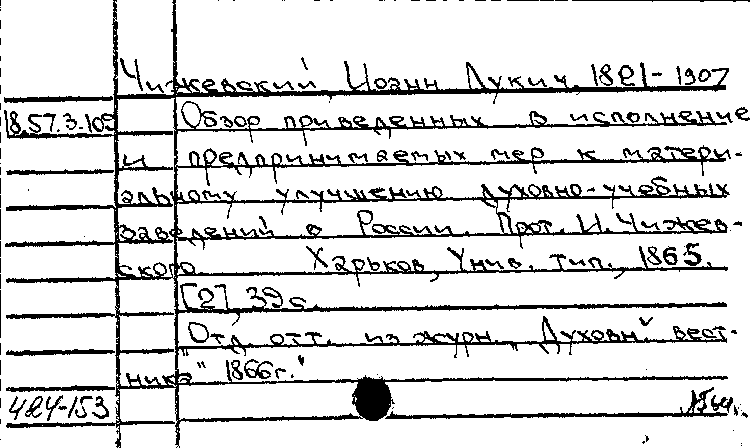 Чижевский, Иоанн Лукич, 1821-1907
18.57.3.109 Обзор приведенных в исполнение
и предпринимаемых мер к матери-
альному улучшению духовно-учебных
заведений в России. Прот. И. Чижев-
ского Харьков, Унив. тип., 1865.
[2], 39 с.
"Отд. отт. из журн. "Духовн. вест-
ника" 1866г."
424-153